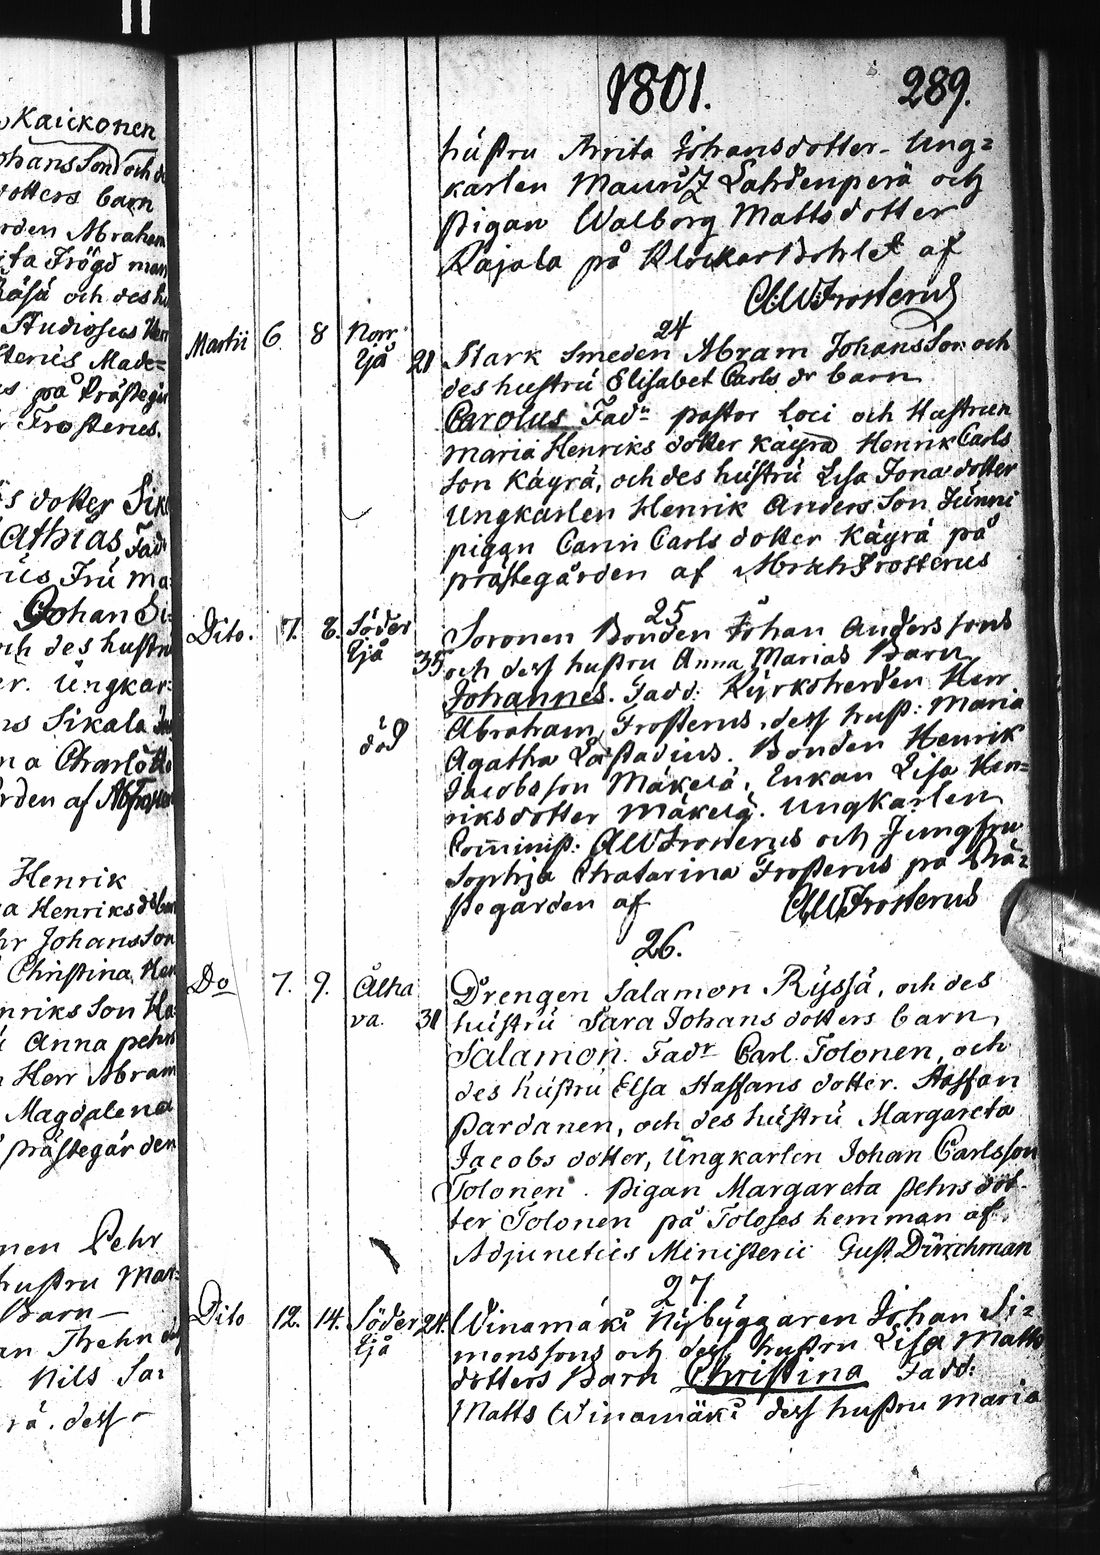 Kaickonen
Johansson och de
dotters barn
rden Abraham
ita Frögd man
Räsä och des hu
Studiosus Herr
sterüs Made=
us på Prästegår
r Frosterus.
s dotter Sik
Mathias Fadr
rüs Frü Ma:
Johan Si=
och des hustru
er. Üngkar:
ns Sikala
na Charlotta
rden af AbFroster
Henrik
a Henriks dr barn
hr Johansson
Christina Hen
nriks Son Ha
Anna pehrs
Herr Abram
Magdalena
prästegården
nen Pehr
hustru Mar=
Barn—
an Threhn
Nils Sa=
rä. dess
1801. 289.
hustru Anita Johansdotter. Ung=
karlen Mauritz Lahdenperä och
Pigan Walborg Mattsdotter
Rajala på Klockarbohlet af
AWFrosterus
24
Martii 6. 8 Norr
Ljå 21 Stark Smeden Abram Johansson och
des hustrü Elisabet Carls dr barn
Carolus Fadr pastor Loci och Hustrun
Maria Henriks dotter Käyrä Henrik Carls
son Käyrä, och des hüstrü Lisa Jona dotter
Üngkarlen Henrik Anders Son Junni
pigan Carin Carls dotter Käyrä på
prästegården af AbrahFrosterus
25
Dito. 7. 8. Söder
Ljå 35 Soronen Bonden Johan Anderssons
och dess hustru Anna Marias Barn
Johannes. Fadd: Kyrkoherden Herr
död Abraham Frosterus, dess hust: Maria
Agatha Læstadius. Bonden Henrik
Jacobsson Mäkelä, Enkan Lisa Hen=
riksdotter Mäkelä. Ungkarlen
Comminist: AWFrosterus och Jungfru
Sophia Chatarina Frosterus på Prä=
stegården af AWFrosterus
26.
Do 7. 9. Alha
va. 31 Drengen Salamon Ryssä, och des
hüstrü Sara Johans dotters barn,
Salamon. Fadr Carl Tolonen, och
des hüstrü Elsa Staffans dotter. Staffan
Pardanen, och des hüstrü Margareta
Jacobs dotter, Üngkarlen Johan Carlsson
Tolonen. Pigan Margareta pehrs dot-
ter Tolonen på Toloses hemman af
Adjunctus Ministerii Gust. Dürchman
27.
Dito 12. 14. Söder
Ljå 24. Winamäki Nybyggaren Johan Si=
monssons och dess hustru Lisa Matts
dotters Barn Christina Fadd:
Matts Winamäki dess hustru Maria